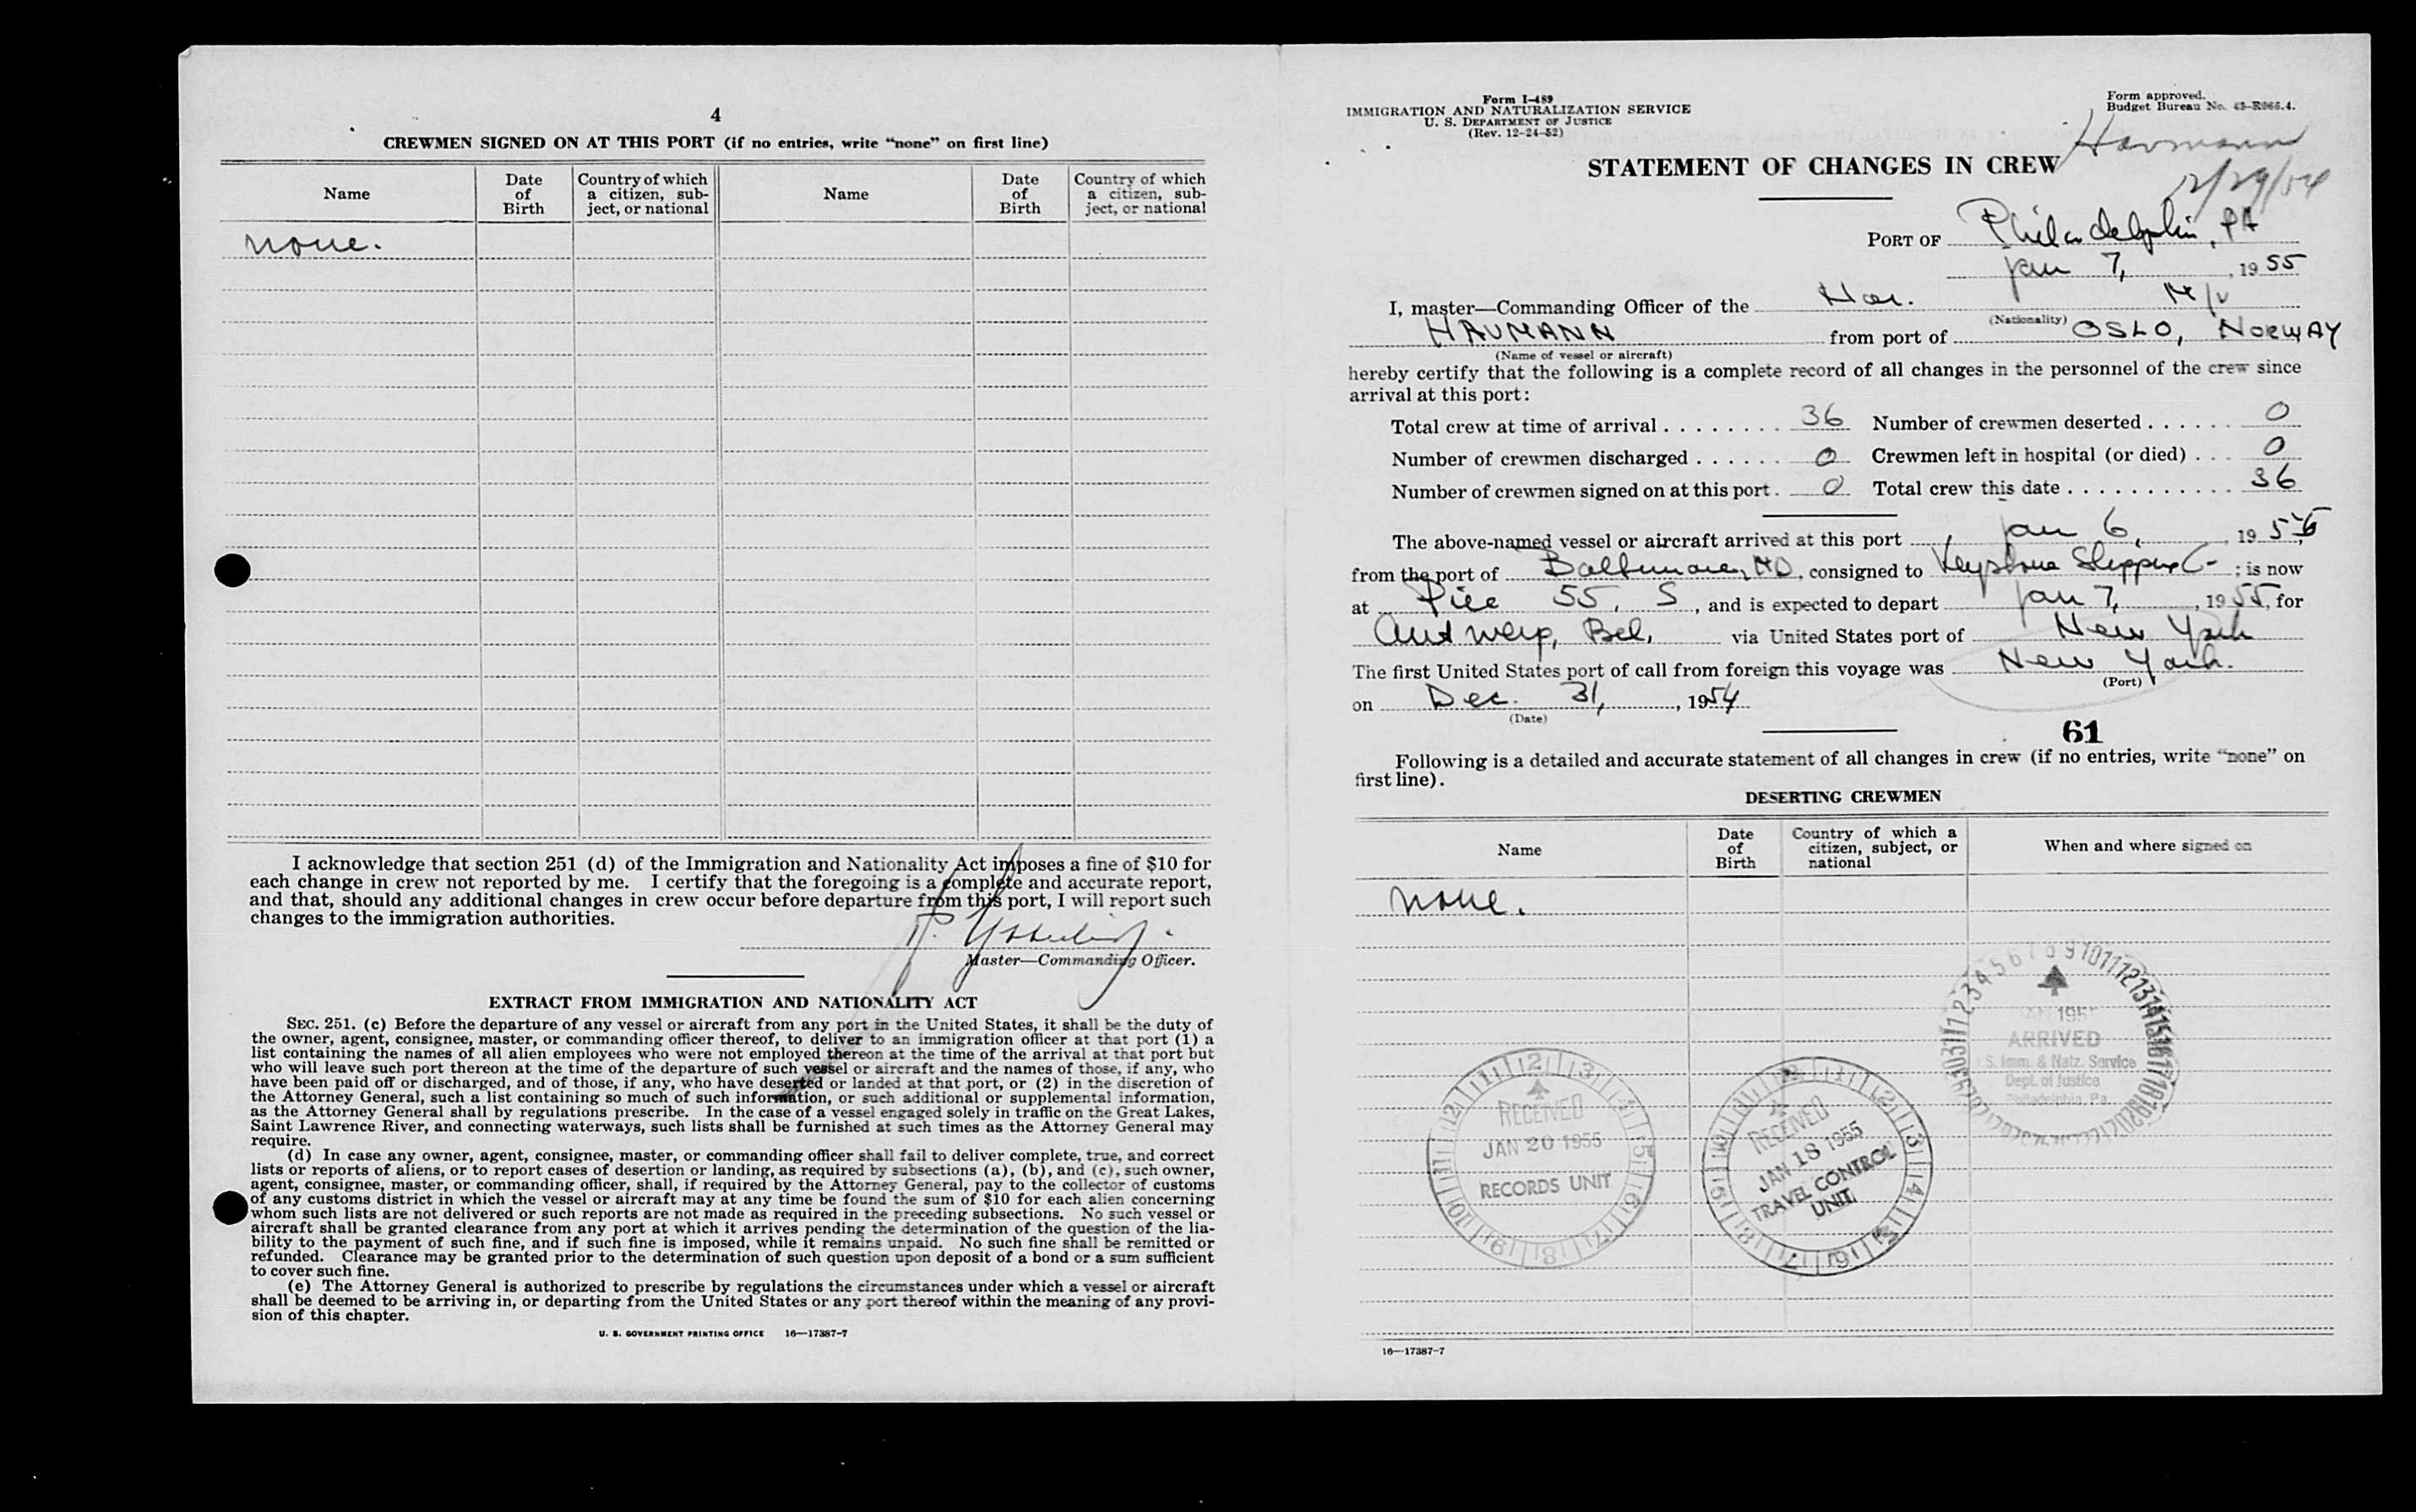 4
CREWMEN SIGNED ON AT THIS PORT (if no entries, write “none” on first line)
Name Date of Birth Country of which a citizen, sub-ject, or national Name Date of Birth Country of which a citizen, sub-ject, or national
none.
I acknowledge that section 251 (d) of the Immigration and Nationality Act imposes a fine of $10 for
each change in crew not reported by me. I certify that the foregoing is a complete and accurate report,
and that, should any additional changes in crew occur before departure from this port, I will report such
changes to the immigration authorities.
Master—Commanding Officer.
EXTRACT FROM IMMIGRATION AND NATIONALITY ACT
SEC. 251. (c) Before the departure of any vessel or aircraft from any port in the United States, it shall be the duty of
the owner, agent, consignee, master, or commanding officer thereof, to deliver to an immigration officer at that port (1) a
list containing the names of all alien employees who were not employed thereon at the time of the arrival at that port but
who will leave such port thereon at the time of the departure of such vessel or aircraft and the names of those, if any, who
have been paid off or discharged, and of those, if any, who have deserted or landed at that port, or (2) in the discretion of
the Attorney General, such a list containing so much of such information, or such additional or supplemental information,
as the Attorney General shall by regulations prescribe. In the case of a vessel engaged solely in traffic on the Great Lakes,
Saint Lawrence River, and connecting waterways, such lists shall be furnished at such times as the Attorney General may
require.
(d) In case any owner, agent, consignee, master, or commanding officer shall fail to deliver complete, true, and correct
lists or reports of aliens, or to report cases of desertion or landing, as required by subsections (a), (b), and (c), such owner,
agent, consignee, master, or commanding officer, shall, if required by the Attorney General, pay to the collector of customs
of any customs district in which the vessel or aircraft may at any time be found the sum of $10 for each alien concerning
whom such lists are not delivered or such reports are not made as required in the preceding subsections. No such vessel or
aircraft shall be granted clearance from any port at which it arrives pending the determination of the question of the lia-
bility to the payment of such fine, and if such fine is imposed, while it remains unpaid. No such fine shall be remitted or
refunded. Clearance may be granted prior to the determination of such question upon deposit of a bond or a sum sufficient
to cover such fine.
(e) The Attorney General is authorized to prescribe by regulations the circumstances under which a vessel or aircraft
shall be deemed to be arriving in, or departing from the United States or any port thereof within the meaning of any provi-
sion of this chapter.
U. S. GOVERNMENT PRINTING OFFICE 16—17387-7
Form I-489
IMMIGRATION AND NATURALIZATION SERVICE
U. S. DEPARTMENT OF JUSTICE
(Rev. 12-24-52)
Form approved.
Budget Bureau No. 43-R066.4.
Havmann
12/29/54
STATEMENT OF CHANGES IN CREW
PORT OF Philadelphia, PA
Jan 7, , 19 55
I, master—Commanding Officer of the Nor. M/V
(Nationality)
HAVMANN from port of OSLO, NORWAY
(Name of vessel or aircraft)
hereby certify that the following is a complete record of all changes in the personnel of the crew since
arrival at this port:
Total crew at time of arrival . . . . . . . . 36 Number of crewmen deserted . . . . . . 0
Number of crewmen discharged . . . . . . 0 Crewmen left in hospital (or died) . . . 0
Number of crewmen signed on at this port . 0 Total crew this date . . . . . . . . . . . . 36
The above-named vessel or aircraft arrived at this port Jan 6, , 19 55
from the port of Baltimore, MD, consigned to Keystone Shipping Co ; is now
at Pier 55, S , and is expected to depart Jan 7, , 19 55, for
Antwerp, Bel. via United States port of New York
The first United States port of call from foreign this voyage was New York.
(Port)
on Dec. 31, , 1954
(Date)
61
Following is a detailed and accurate statement of all changes in crew (if no entries, write “none” on
first line).
DESERTING CREWMEN
Name Date of Birth Country of which a citizen, subject, or national When and where signed on
none.
1955
ARRIVED
S. Imm. & Natz. Service
Dept. of Justice
Philadelphia, Pa.
RECEIVED
JAN 20 1955
RECORDS UNIT
RECEIVED
JAN 18 1955
TRAVEL CONTROL
UNIT
16—17387-7